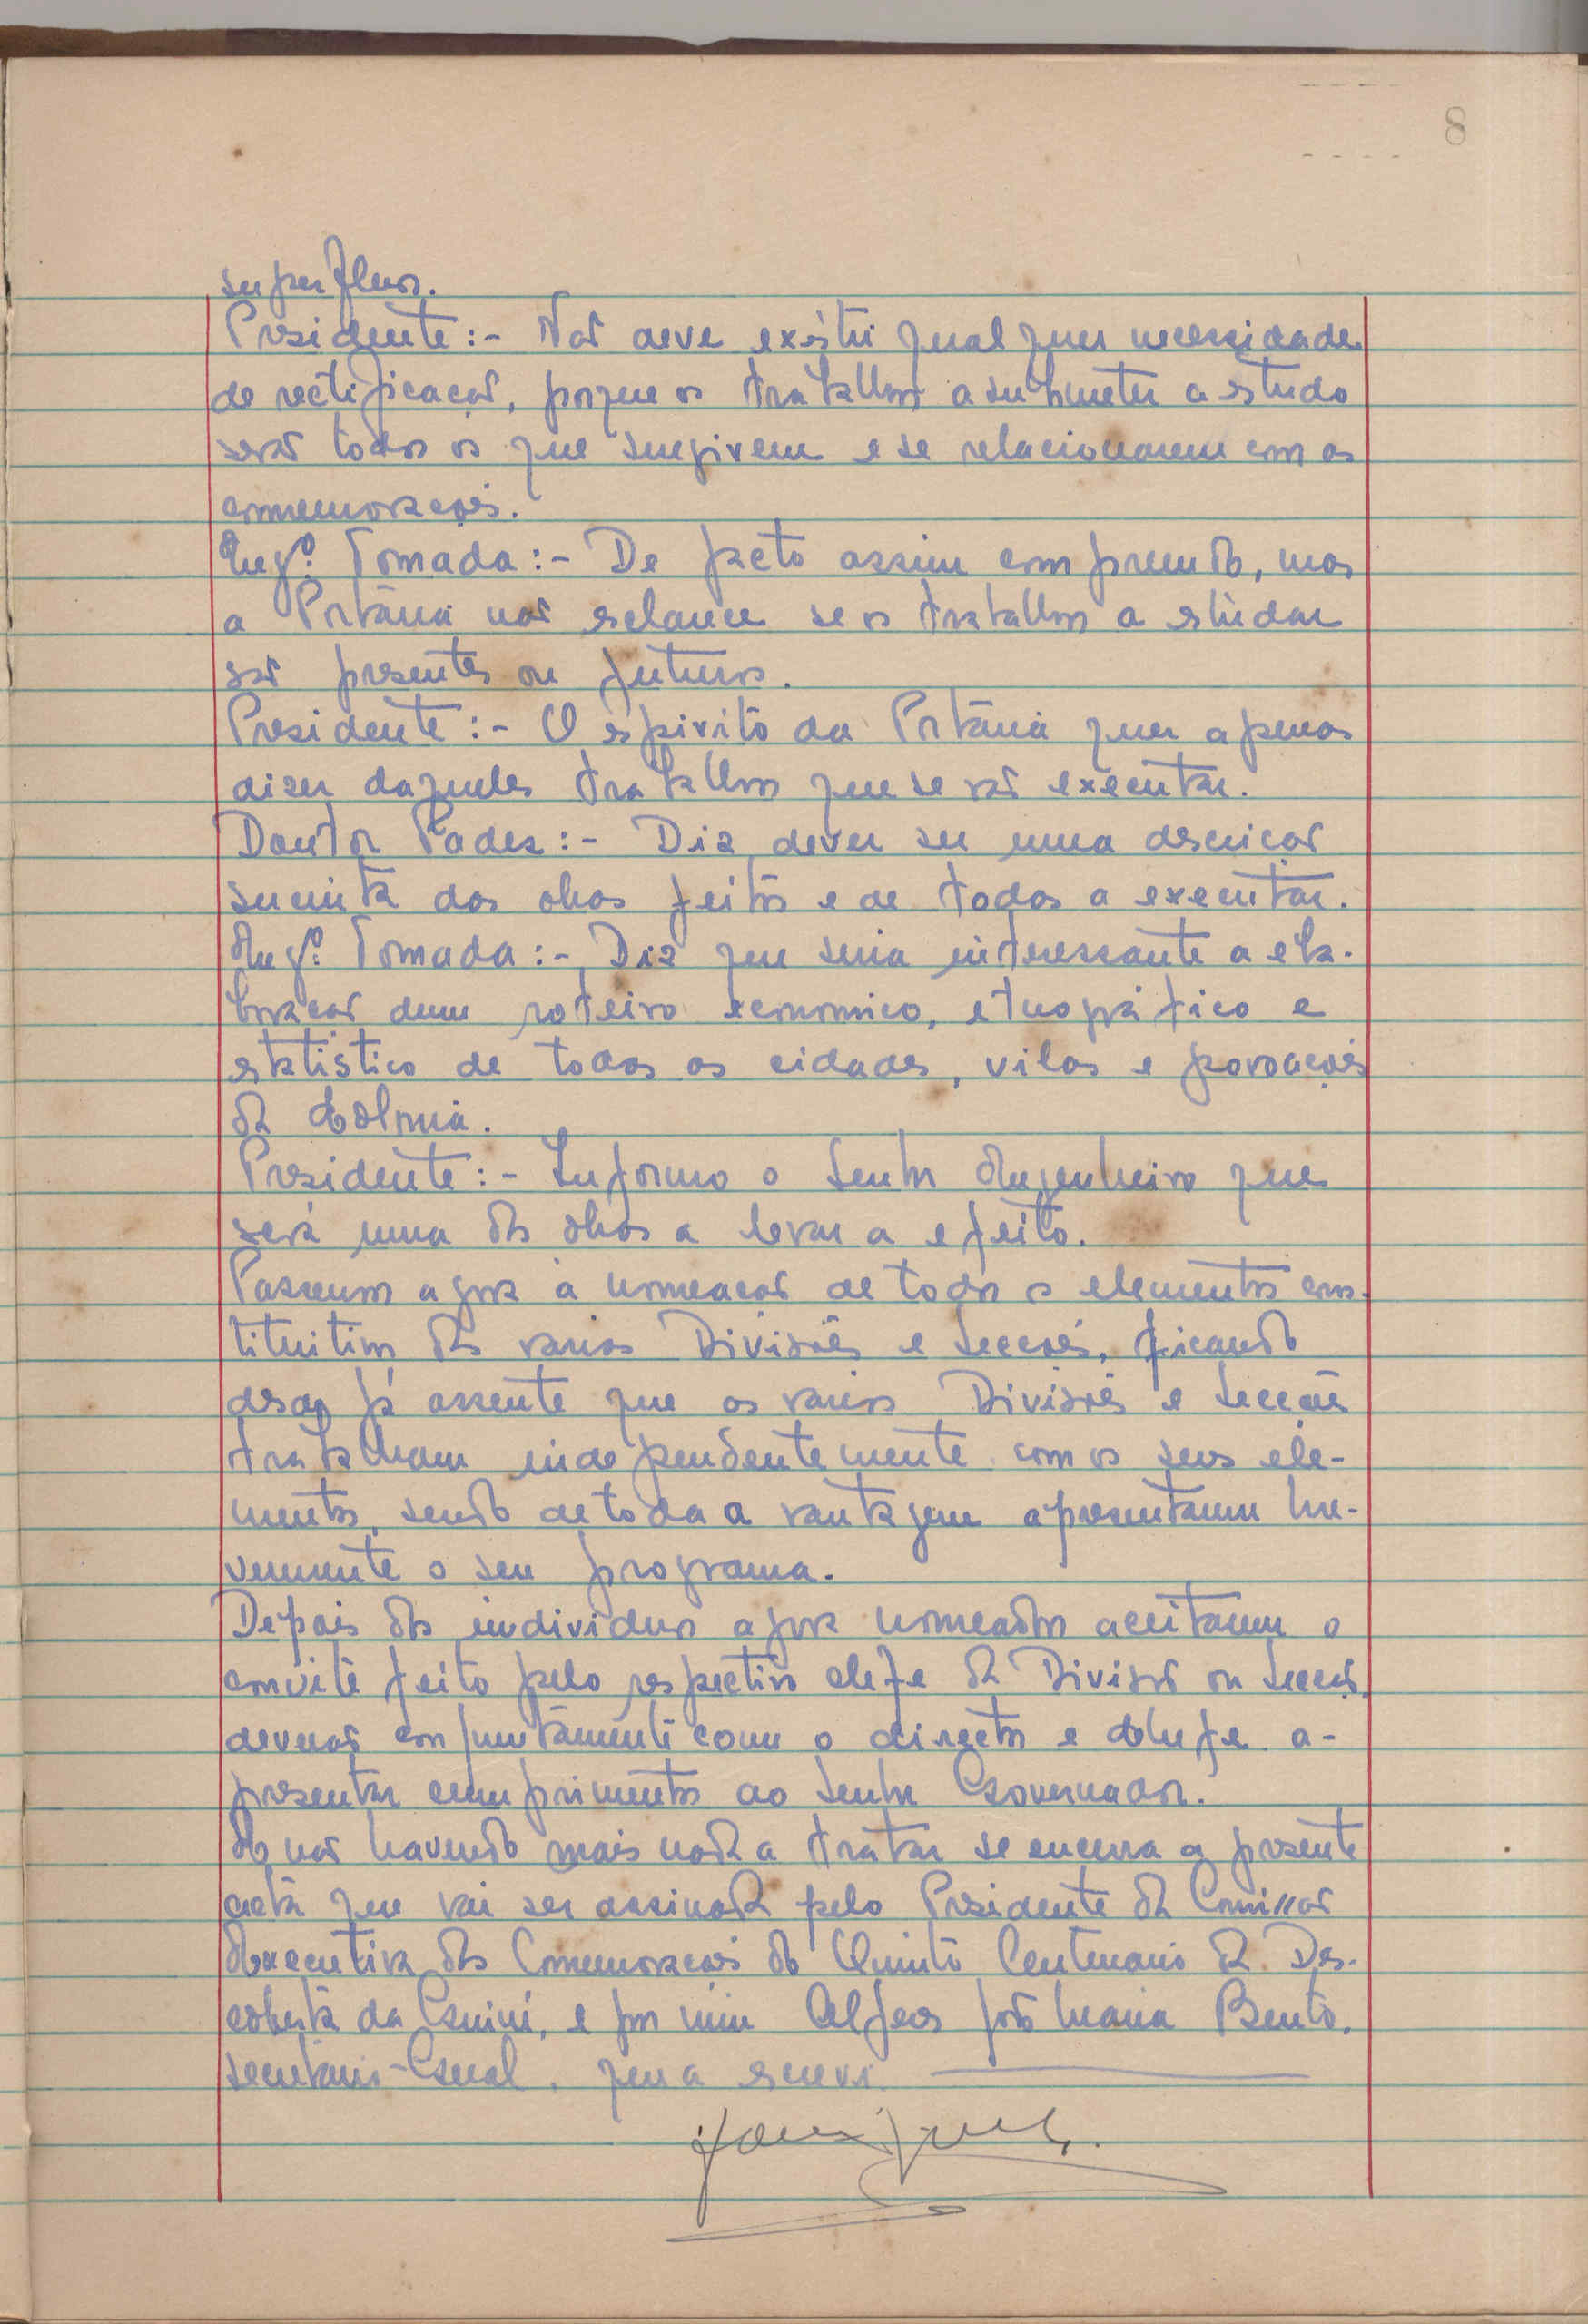 8
superfluos.
Presidente:- Não deve existir qualquer necessidade
de rectificação, porque os trabalhos a submeter a estudo
serão todos os que surgirem e se relacionarem com as
comemorações.
Engº. Tomada:- De facto assim compreendo, mas
a Portaria não esclarece se os trabalhos a estudar
são presentes ou futuros.
Presidente:- O espirito da Portaria quer apenas
dizer daqueles trabalhos que se vão executar.
Doutor Pades:- Diz dever ser uma descrição
sucinta das obras feitas e de todas a executar.
Engº. Tomada:- Diz que seria interessante a ela-
boração dum roteiro economico, etnográfico e
estatistico de todas as cidades, vilas e povoações
da Colonia.
Presidente:- Informo o Senhor Engenheiro que
será uma das obras a levar a efeito.
Passemos agora à nomeação de todos os elementos cons-
titutivos das varias Divisões e Secções, ficando
desde já assente que as varias Divisões e Secções
trabalham independentemente com os seus ele-
mentos, sendo de toda a vantagem apresentarem bre-
vemente o seu programa.
Depois dos individuos agora nomeados aceitarem o
convite feito pelo respectivo chefe da Divisão ou Secção,
deverão conjuntamente com o director e chefe a-
presentar cumprimentos ao Senhor Governador.
E não havendo mais nada a tratar se encerra a presente
acta que vai ser assinada pelo Presidente da Comissão
Executiva das Comemorações do Quinto Centenario da Des-
coberta da Guiné, e por mim Alferes João Maria Bento,
secretario-Geral, que a escrevi.